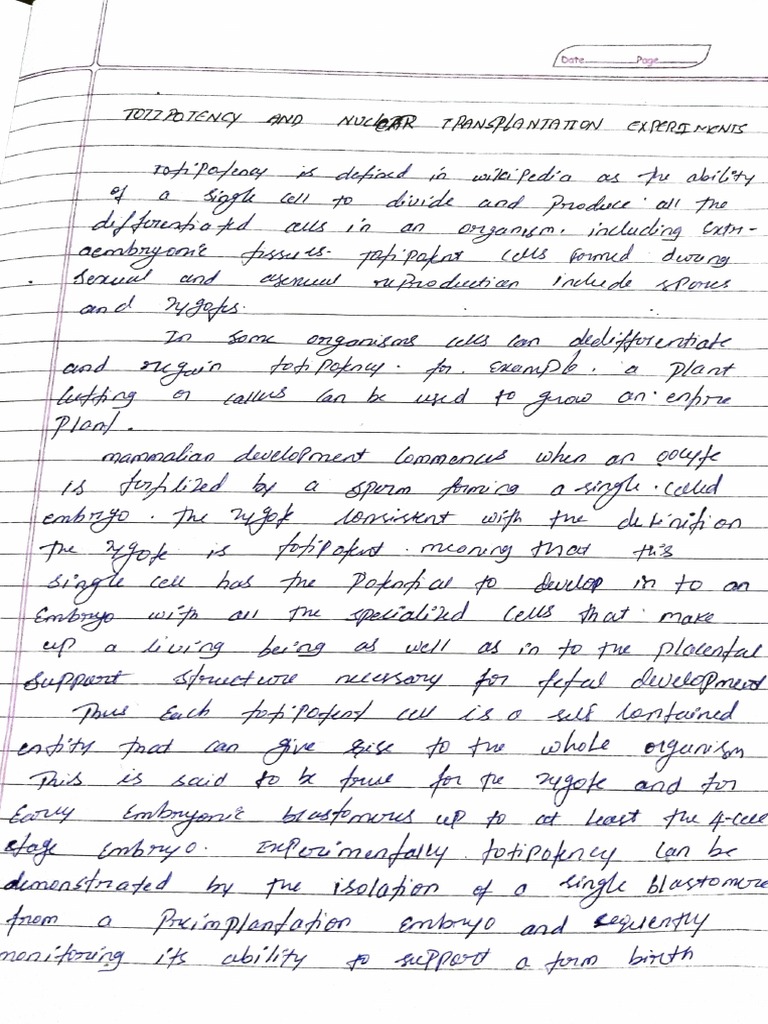 Date Page
TOTIPOTENCY AND NUCLEAR TRANSPLANTATION EXPERIMENTS
Totipotency is defined in wikipedia as the ability
of a single cell to divide and produce all the
differentiated cells in an organism. including extra-
aembryonic tissues. totipotent cells formed during
sexual and asexual reproduction include spores
and zygotes.
In some organisms cells can dedifferentiate
and regain totipotency. for example. a plant
cutting or callus can be used to grow an entire
plant.
mammalian development commences when an oocyte
is fertilized by a sperm forming a single. celled
embryo. the zygote consistent with the definition
the zygote is totipotent. meaning that this
single cell has the potential to develop in to an
Embryo with all the specialized cells that make
up a living being as well as in to the placental
support structure necessary for fetal development
Thus Each totipotent cell is a self contained
entity that can give rise to the whole organism
This is said to be true for the zygote and for
Early Embryonic blastomeres up to at least the 4-cell
stage Embryo. Experimentally totipotency can be
demonstrated by the isolation of a single blastomere
from a Preimplantation embryo and sequently
monitoring its ability to support a term birth